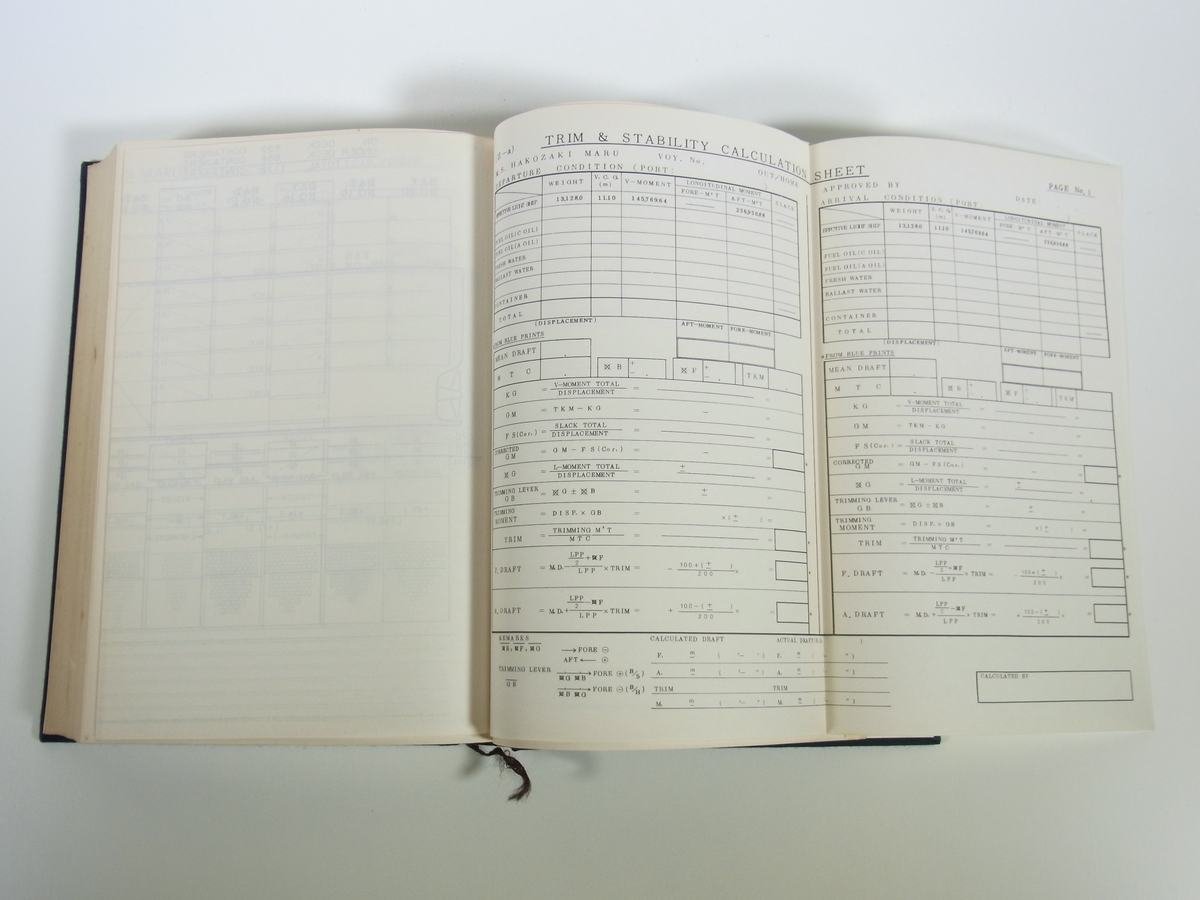 TRIM & STABILITY CALCULATION SHEET
HAKOZAKI MARU VOY. No. OUT/HOME
DEPARTURE CONDITION (PORT:
WEIGHT V.C.G. (m) V-MOMENT LONGITUDINAL MOMENT SLACK
FORE-M'T AFT-M'T
EFFECTIVE LIGHT SHIP 13,128.0 11.10 145,769.64
FUEL OIL(C OIL)
FUEL OIL(A OIL)
FRESH WATER
BALLAST WATER
CONTAINER
TOTAL
(DISPLACEMENT)
AFT-MOMENT FORE-MOMENT
FROM BLUE PRINTS
MEAN DRAFT
M T C ⊠B + − ⊠F + − TKM
KG = V-MOMENT TOTAL / DISPLACEMENT =
GM = TKM − KG = −
FS(Cor.) = SLACK TOTAL / DISPLACEMENT =
CORRECTED GM = GM − FS(Cor.) = −
⊠G = L-MOMENT TOTAL / DISPLACEMENT = ±
TRIMMING LEVER GB = ⊠G ± ⊠B = ±
TRIMMING MOMENT = DISP. × GB = ×(± ) =
TRIM = TRIMMING M'T / MTC =
F. DRAFT = M.D. − LPP/2 + ⊠F / LPP × TRIM = − 100+(± ) / 200 × =
A. DRAFT = M.D. + LPP/2 − ⊠F / LPP × TRIM = + 100−(± ) / 200 × =
REMARKS
⊠B, ⊠F, ⊠G → FORE ⊖
AFT ← ⊕
TRIMMING LEVER GB
⊠G ⊠B → FORE ⊕ (B/S)
⊠B ⊠G → FORE ⊖ (B/H)
CALCULATED DRAFT ACTUAL DRAFT
F. m ( '− ") F. m ( ")
A. m ( '− ") A. m ( ")
TRIM TRIM
M. m ( '− ") M. m ( ")
APPROVED BY DATE PAGE No.
ARRIVAL CONDITION (PORT
WEIGHT V.C.G. (m) V-MOMENT LONGITUDINAL MOMENT SLACK
FORE-M'T AFT-M'T
EFFECTIVE LIGHT SHIP 13,128.0 11.10 145,769.64
FUEL OIL(C OIL)
FUEL OIL(A OIL)
FRESH WATER
BALLAST WATER
CONTAINER
TOTAL
(DISPLACEMENT)
AFT-MOMENT FORE-MOMENT
FROM BLUE PRINTS
MEAN DRAFT
M T C ⊠B ⊠F TKM
KG = V-MOMENT TOTAL / DISPLACEMENT =
GM = TKM − KG =
FS(Cor.) = SLACK TOTAL / DISPLACEMENT =
CORRECTED GM = GM − FS(Cor.) =
⊠G = L-MOMENT TOTAL / DISPLACEMENT = ±
TRIMMING LEVER GB = ⊠G ± ⊠B = ±
TRIMMING MOMENT = DISP. × GB = ×(± ) =
TRIM = TRIMMING M'T / MTC =
F. DRAFT = M.D. − LPP/2 − ⊠F / LPP × TRIM = − 100+(± ) / 200 × =
A. DRAFT = M.D. + LPP/2 − ⊠F / LPP × TRIM = + 100−(± ) / 200 × =
CALCULATED BY